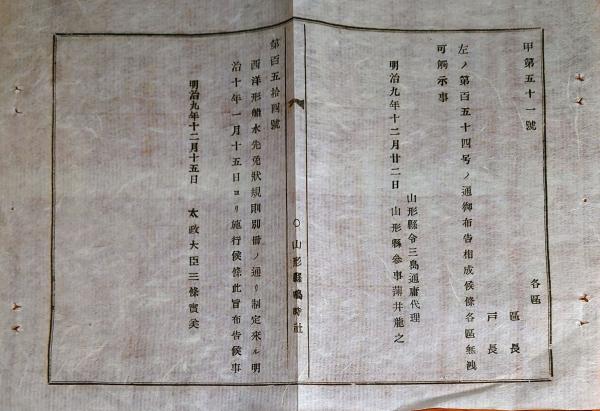 甲第五十一號
各區
區長
戸長
左ノ第百五十四号ノ通御布告相成候條各區無洩
可觸示事
山形縣令三島通庸代理
明治九年十二月廿二日 山形縣參事薄井龍之
○山形縣鳴時社
第百五拾四號
西洋形船水先免狀規則別冊ノ通リ制定來ル明
治十年一月十五日ヨリ施行候條此旨布告候事
明治九年十二月十五日 太政大臣三條實美